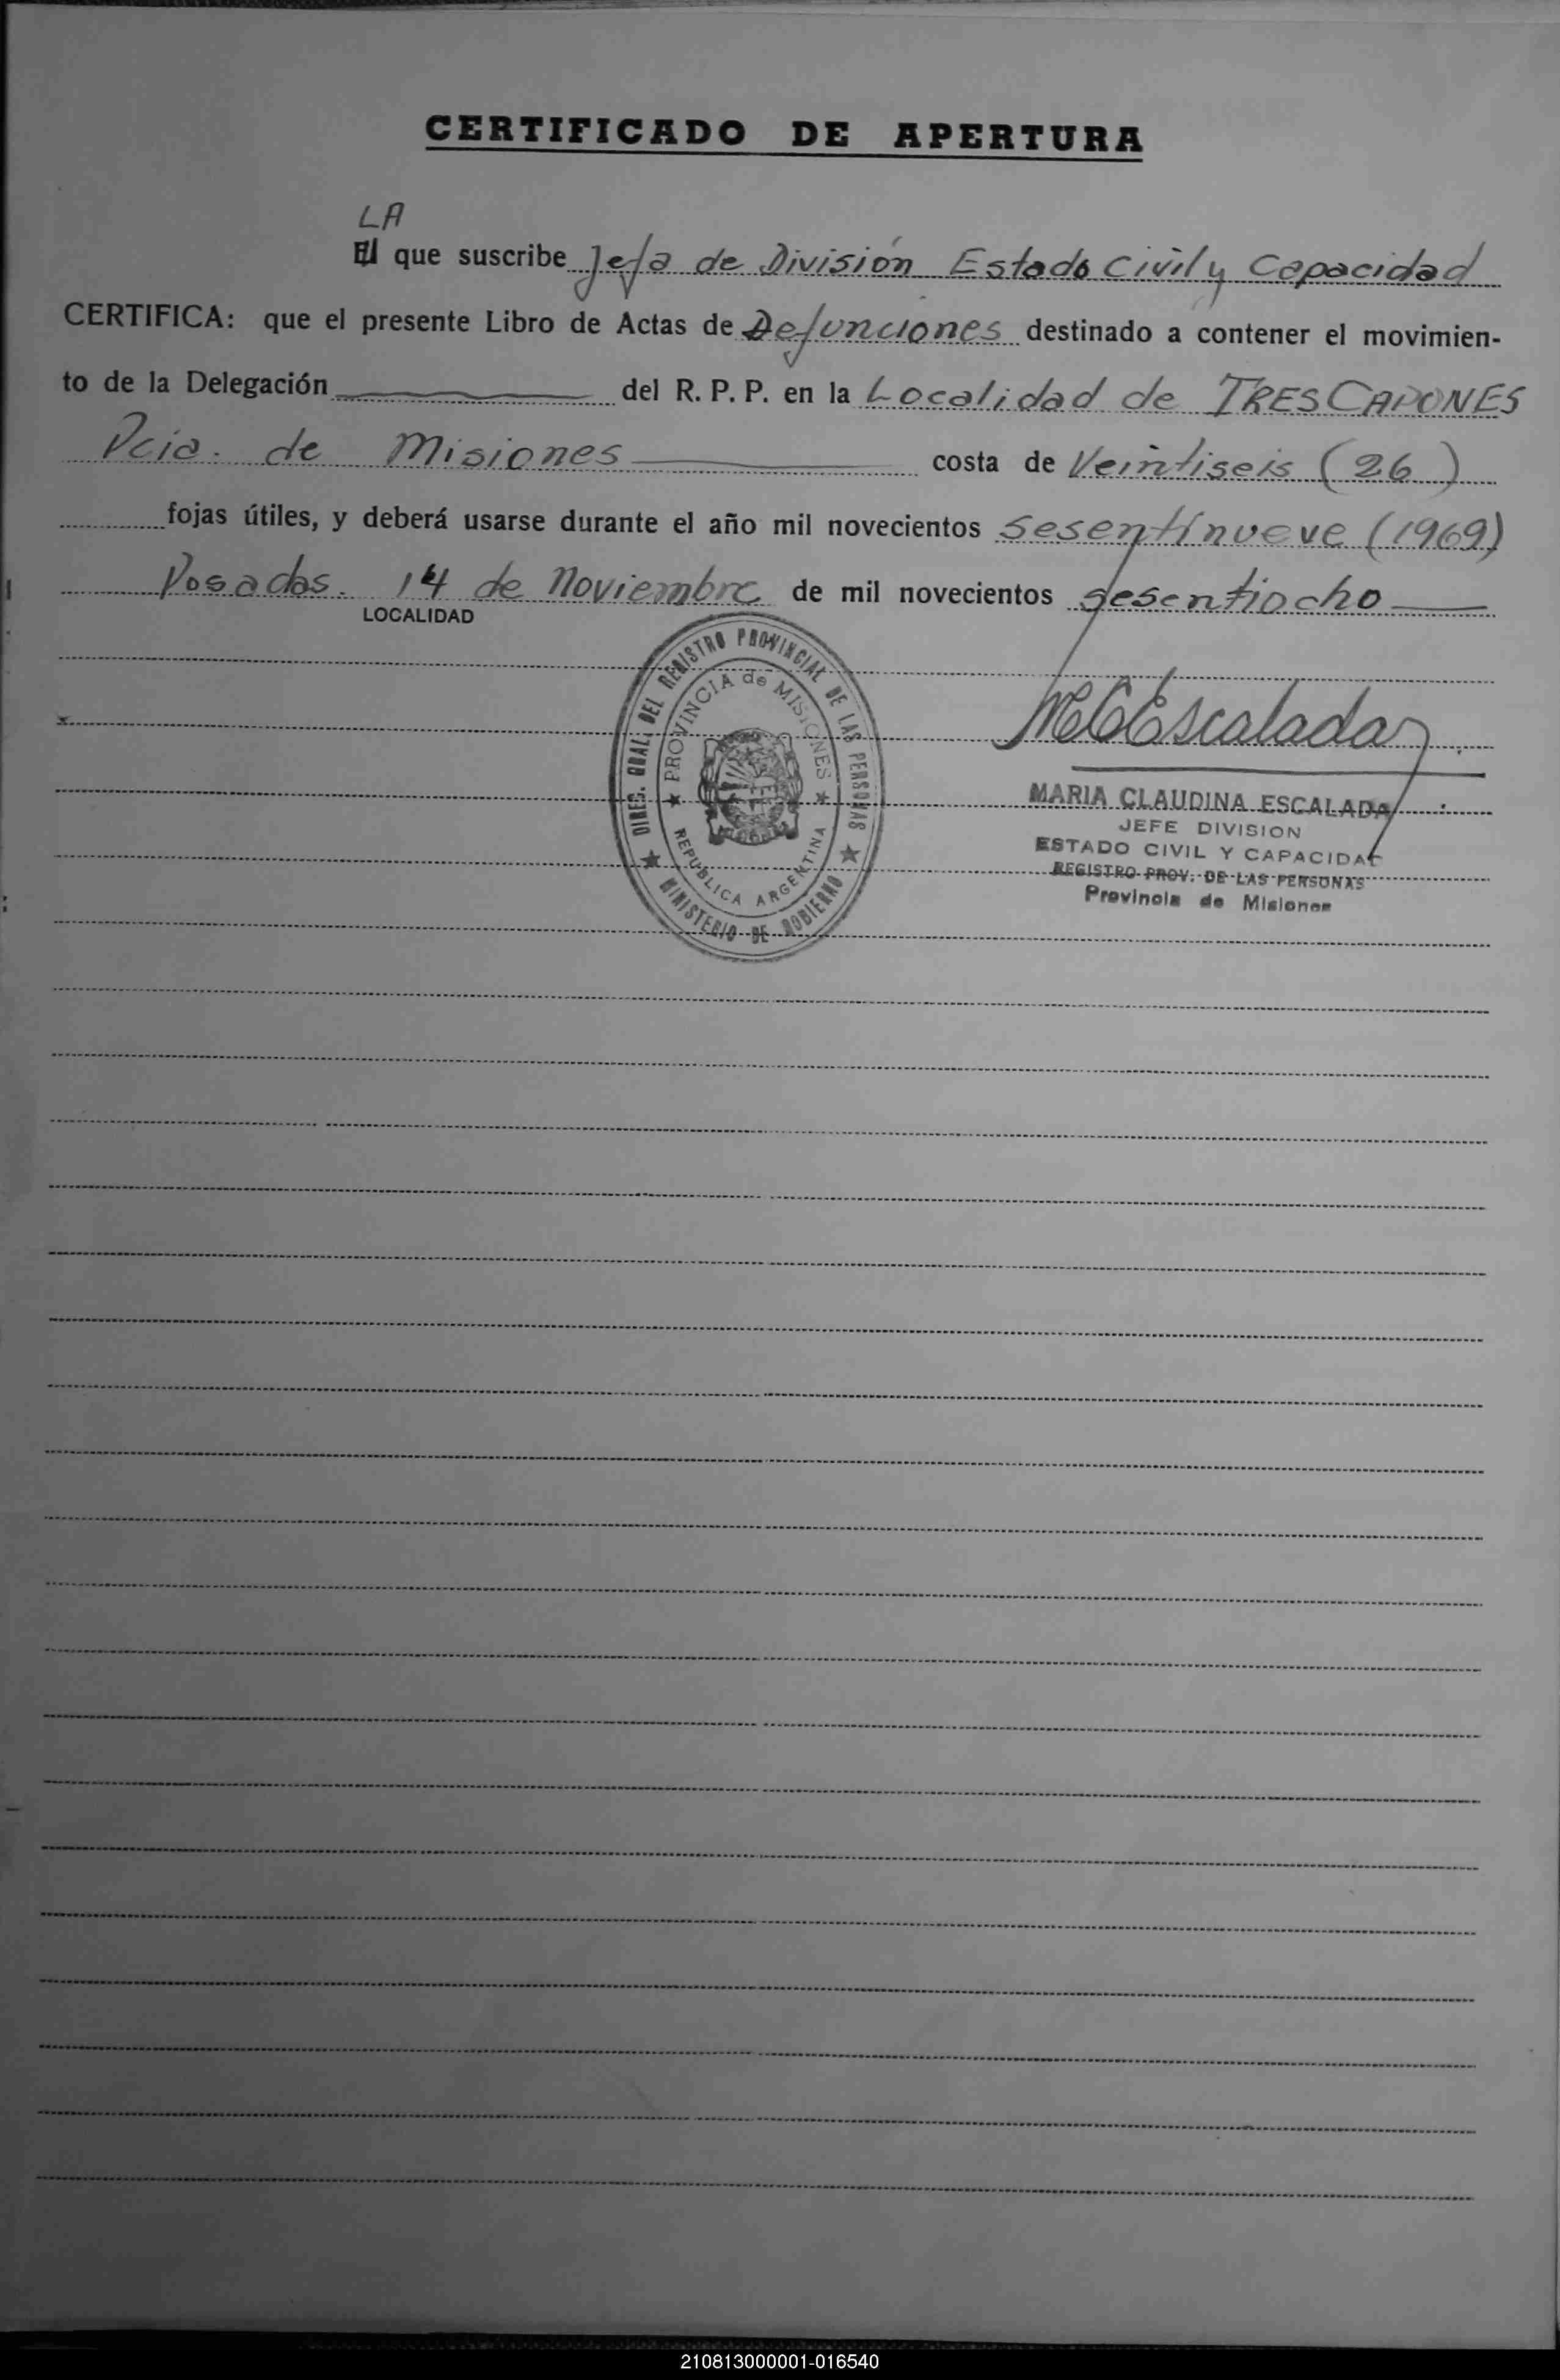 CERTIFICADO DE APERTURA
LA
El que suscribe Jefa de División Estado Civil y Capacidad
CERTIFICA: que el presente Libro de Actas de Defunciones destinado a contener el movimien-
to de la Delegación del R. P. P. en la Localidad de TRES CAPONES
Pcia. de Misiones costa de Veintiseis (26)
fojas útiles, y deberá usarse durante el año mil novecientos sesentinueve (1969)
Posadas. 14 de Noviembre de mil novecientos sesentiocho
LOCALIDAD
DIREC. GRAL. DEL REGISTRO PROVINCIAL DE LAS PERSONAS
PROVINCIA de MISIONES
REPUBLICA ARGENTINA
MINISTERIO DE GOBIERNO
MCEscalada
MARIA CLAUDINA ESCALADA
JEFE DIVISION
ESTADO CIVIL Y CAPACIDAD
REGISTRO PROV. DE LAS PERSONAS
Provincia de Misiones
210813000001-016540